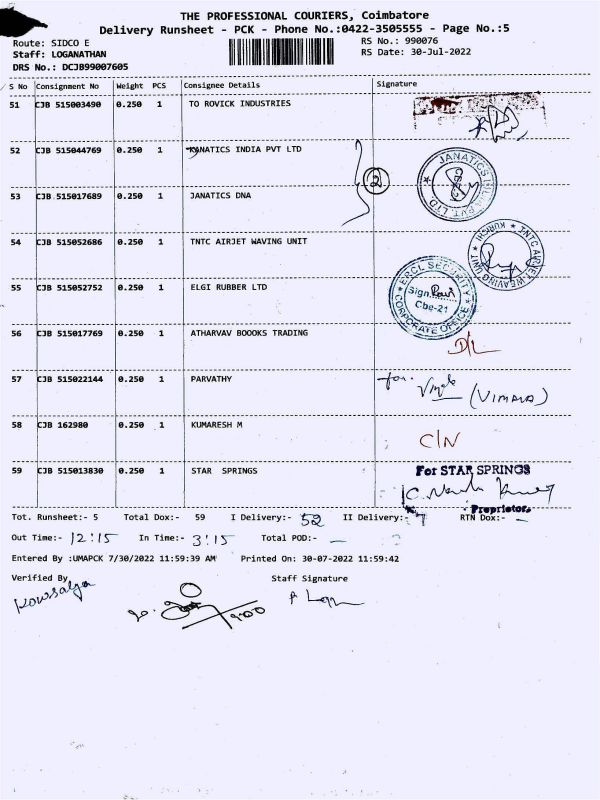 THE PROFESSIONAL COURIERS, Coimbatore
Delivery Runsheet - PCK - Phone No.:0422-3505555 - Page No.:5
Route: SIDCO E RS No.: 990076
Staff: LOGANATHAN RS Date: 30-Jul-2022
DRS No.: DCJB99007605
S No Consignment No Weight PCS Consignee Details Signature
51 CJB 515003490 0.250 1 TO ROVICK INDUSTRIES
52 CJB 515044769 0.250 1 JANATICS INDIA PVT LTD
JANATICS INDIA PVT. LTD
2
53 CJB 515017689 0.250 1 JANATICS DNA
54 CJB 515052686 0.250 1 TNTC AIRJET WAVING UNIT
TNTC AIRJET WEAVING UNIT KURICHI
55 CJB 515052752 0.250 1 ELGI RUBBER LTD
ERCL SECURITY
Sign.
Cbe-21
CORPORATE OFFICE
56 CJB 515017769 0.250 1 ATHARVAV BOOOKS TRADING
D/L
57 CJB 515022144 0.250 1 PARVATHY
for. (VIMALA)
58 CJB 162980 0.250 1 KUMARESH M
C/N
59 CJB 515013830 0.250 1 STAR SPRINGS For STAR SPRINGS
Proprietor.
Tot. Runsheet:- 5 Total Dox:- 59 I Delivery:- 52 II Delivery:- 7 RTN Dox:- -
Out Time:- 12:15 In Time:- 3:15 Total POD:- -
Entered By :UMAPCK 7/30/2022 11:59:39 AM Printed On: 30-07-2022 11:59:42
Verified By Staff Signature
Kowsalya